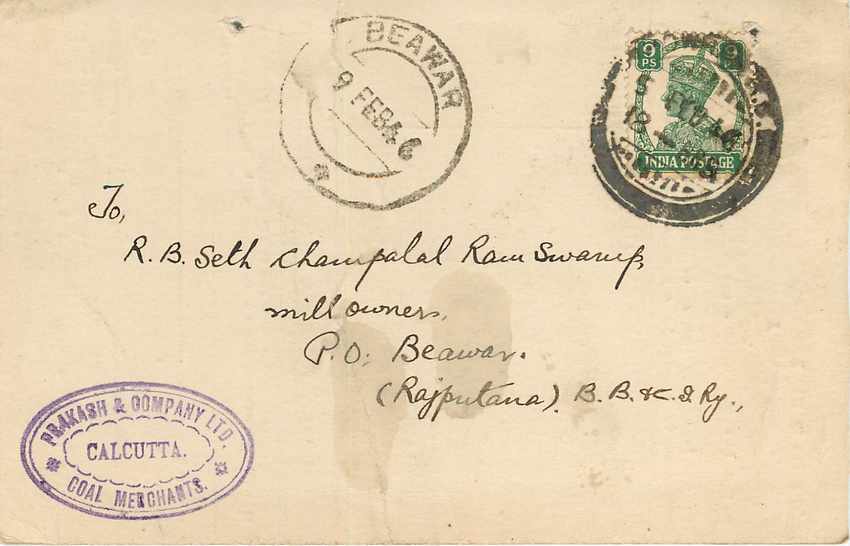 BEAWAR
9 FEB 46
9 PS
9
INDIA POSTAGE
To,
R. B. Seth Champalal Ram Swarup,
mill owners,
P.O. Beawar.
(Rajputana). B. B. & C. I. Ry.,
PRAKASH & COMPANY LTD.
CALCUTTA.
COAL MERCHANTS.